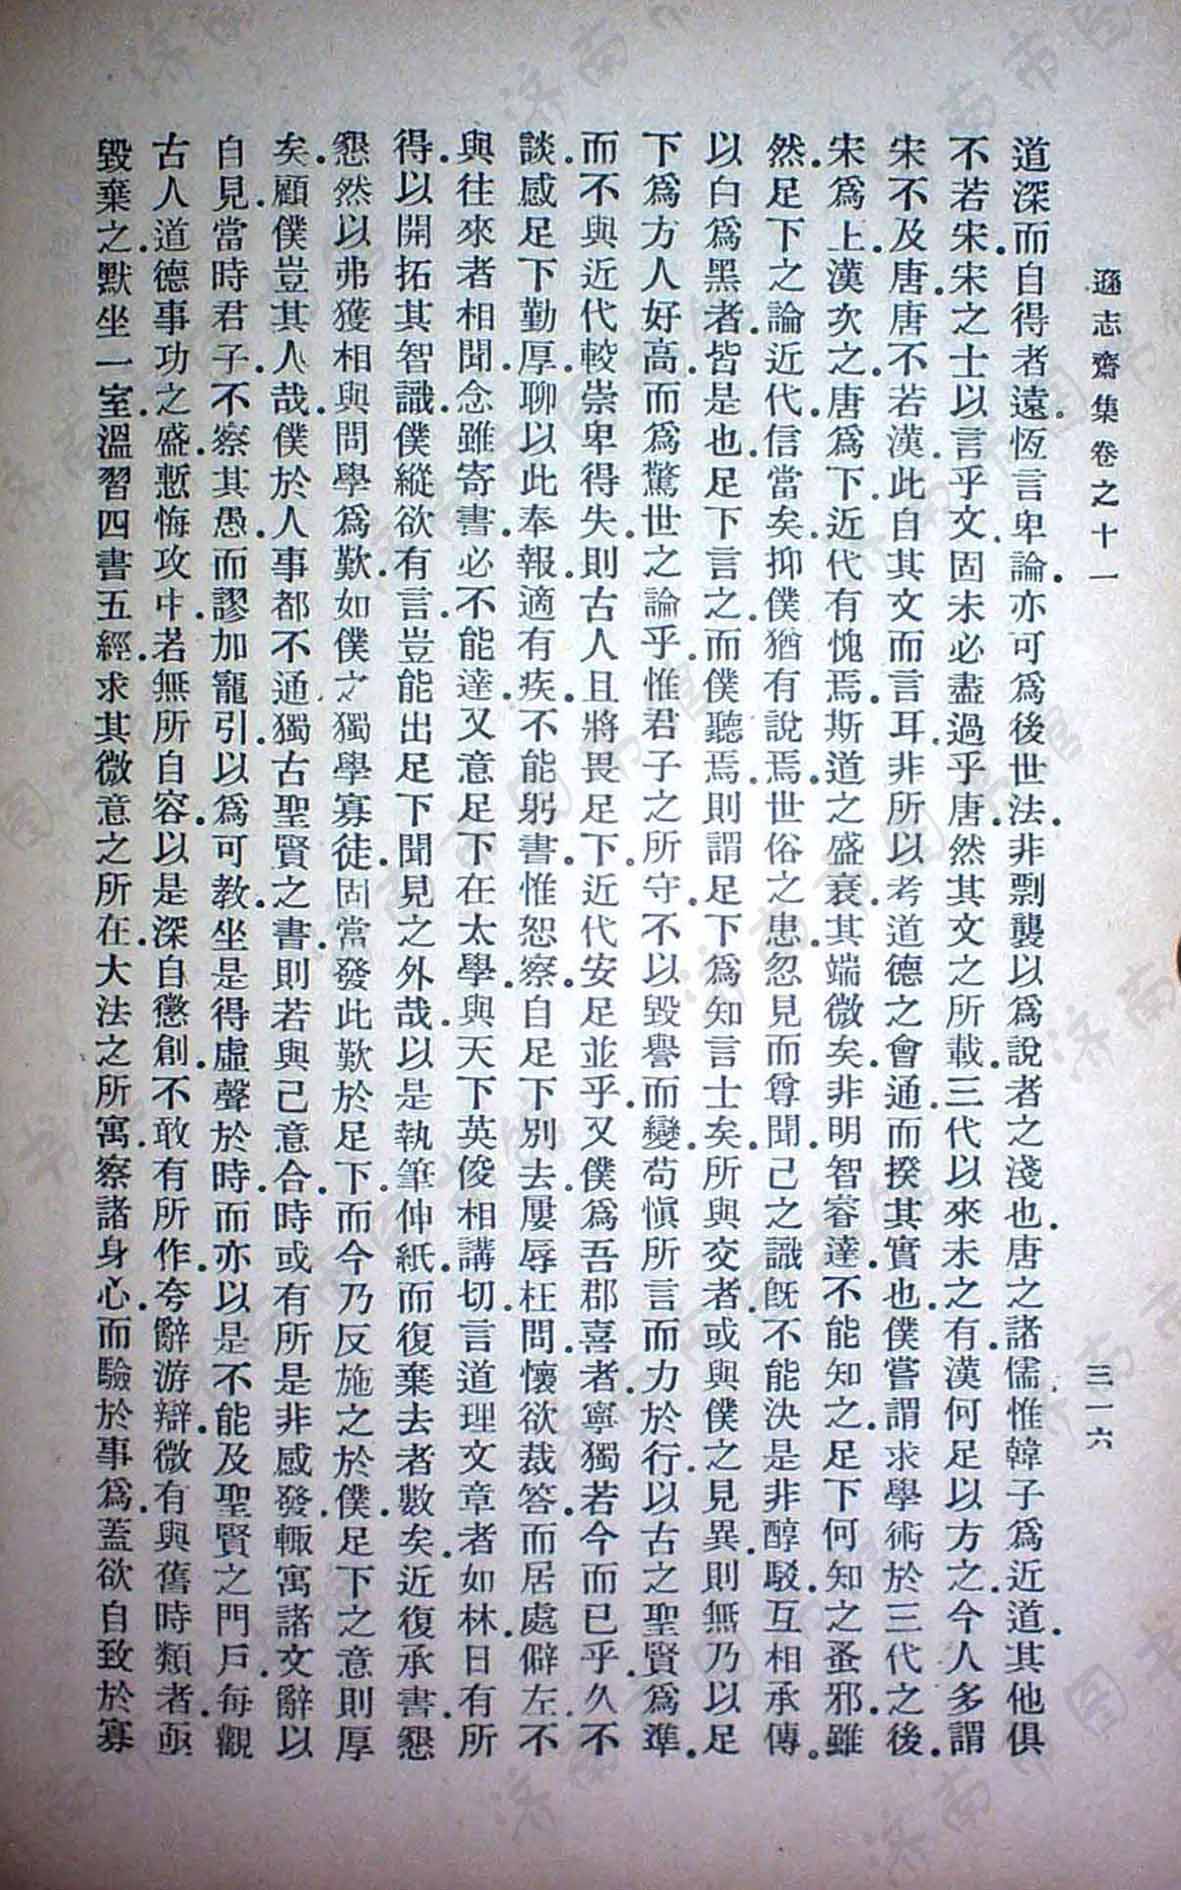 遜志齋集卷之十一
三一六
道深而自得者遠。恆言卑論.亦可爲後世法.非剽襲以爲說者之淺也.唐之諸儒.惟韓子爲近道.其他俱
不若宋.宋之士以言乎文.固未必盡過乎唐.然其文之所載.三代以來未之有.漢何足以方之.今人多謂
宋不及唐.唐不若漢.此自其文而言耳.非所以考道德之會通.而揆其實也.僕嘗謂求學術於三代之後.
宋爲上.漢次之.唐爲下.近代有愧焉.斯道之盛衰.其端微矣.非明智睿達.不能知之.足下何知之蚤邪.雖
然.足下之論近代.信當矣.抑僕猶有說焉.世俗之患.忽見而尊聞.己之識旣不能決是非醇駁.互相承傳。
以白爲黑者.皆是也.足下言之.而僕聽焉.則謂足下爲知言士矣.所與交者.或與僕之見異.則無乃以足
下爲方人好高.而爲驚世之論乎.惟君子之所守.不以毀譽而變.苟愼所言而力於行.以古之聖賢爲準.
而不與近代較崇卑得失.則古人且將畏足下.近代安足並乎.又僕爲吾郡喜者.寧獨若今而已乎.久不
談.感足下勤厚.聊以此奉報.適有疾.不能躬書.惟恕察.自足下別去.屢辱枉問.懷欲裁答.而居處僻左.不
與往來者相聞.念雖寄書.必不能達.又意足下在太學.與天下英俊相講切.言道理文章者如林.日有所
得.以開拓其智識.僕縱欲有言.豈能出足下聞見之外哉.以是執筆伸紙.而復棄去者數矣.近復承書.懇
懇然以弗獲相與問學爲歎.如僕之獨學寡徒.固當發此歎於足下.而今乃反施之於僕.足下之意則厚
矣.顧僕豈其人哉.僕於人事都不通.獨古聖賢之書.則若與己意合.時或有所是非感發.輒寓諸文辭以
自見.當時君子.不察其愚.而謬加寵引.以爲可教.坐是得虛聲於時.而亦以是不能及聖賢之門戶.每觀
古人道德事功之盛.慙悔攻中.若無所自容.以是深自懲創.不敢有所作.夸辭游辯.微有與舊時類者.亟
毀棄之.默坐一室.溫習四書五經.求其微意之所在.大法之所寓.察諸身心.而驗於事爲.蓋欲自致於寡